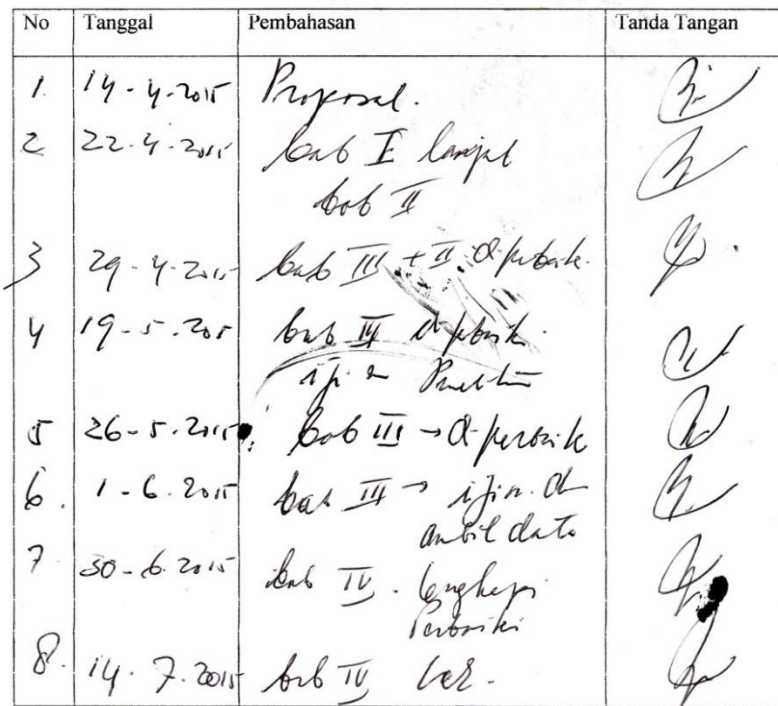 No Tanggal Pembahasan Tanda Tangan
1. 14-4-2015 Proposal.
2 22-4-2015 bab I lanjut
bab II
3 29-4-2015 bab III + II diperbaik
4 19-5-2015 bab diperbaik
ijin Penelitian
5 26-5-2015 bab III → diperbaik
6. 1-6-2015 bab III → ijin
ambil data
7 30-6-2015 bab IV. lengkapi
Perbaiki
8. 14-7-2015 bab IV